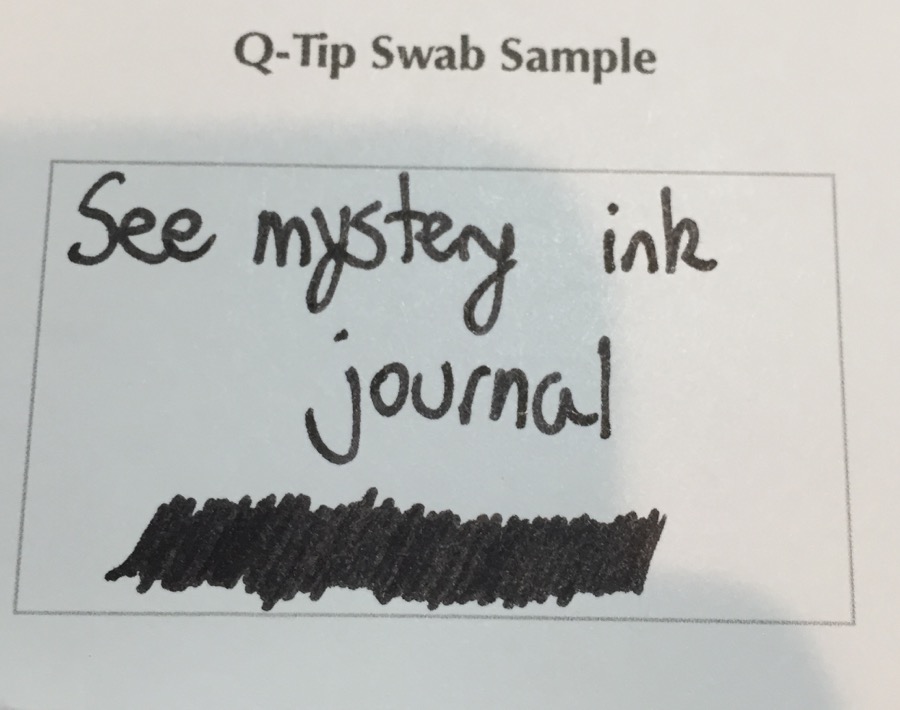 Q-Tip Swab Sample
See mystery ink
journal